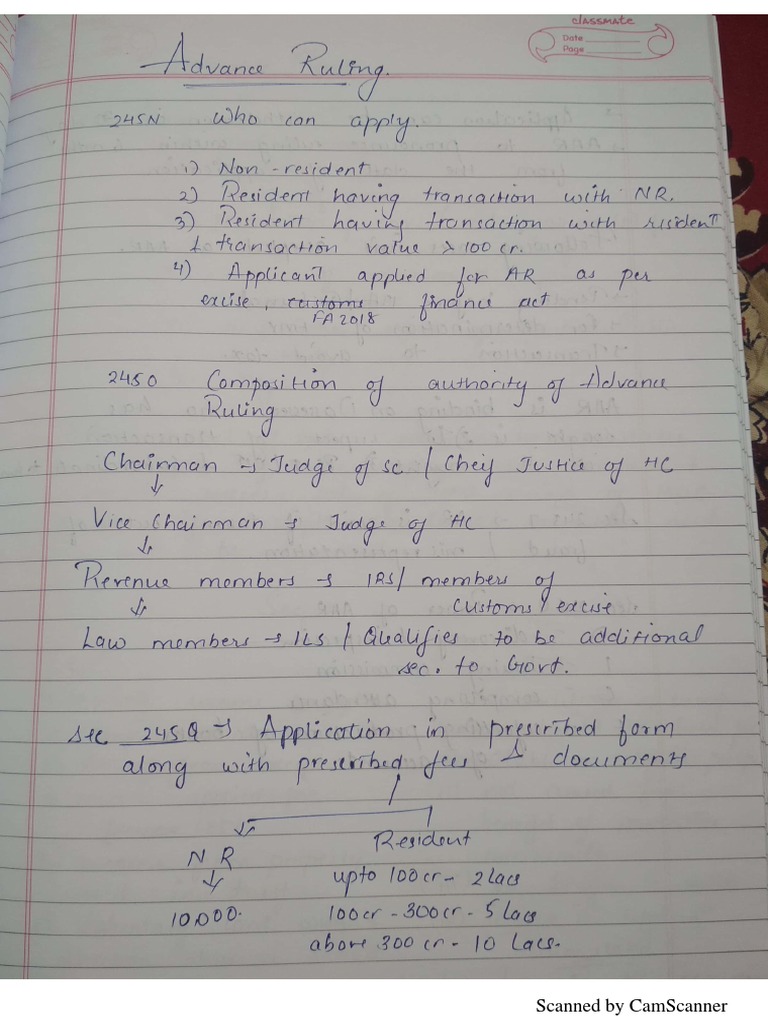 classmate
Date
Page
Advance Ruling.
245N Who can apply.
1) Non-resident
2) Resident having transaction with NR.
3) Resident having transaction with risident
& transaction value > 100 cr.
4) Applicant applied for AR as per
excise, customs finance act
FA 2018
245O Composition of authority of Advance
Ruling
Chairman → Judge of SC / Cheif Justice of HC
↓
Vice Chairman → Judge of HC
↓
Revenue members → IRS/ members of
customs/ excise.
↓
Law members → ILS / Qualifies to be additional
sec. to Govt.
Sec 245Q → Application in prescribed form
along with prescribed fees & documents
NR
↓
10,000.
Resident
upto 100cr - 2 lacs
100cr - 300cr - 5 lacs
above 300 cr - 10 Lacs.
Scanned by CamScanner